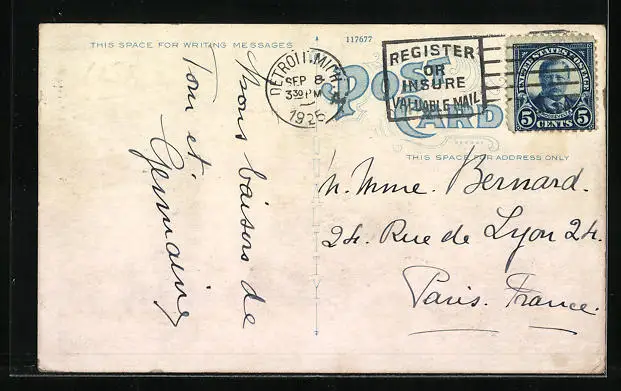 THIS SPACE FOR WRITING MESSAGES
117677
POST CARD
DETROIT, MICH.
SEP 8
330 PM
1925
REGISTER
OR
INSURE
VALUABLE MAIL
UNITED STATES POSTAGE
ROOSEVELT
5 CENTS 5
THIS SPACE FOR ADDRESS ONLY
bons baisers de
Tom et
Germaine
M. Mme. Bernard.
24. Rue de Lyon 24.
Paris. France.